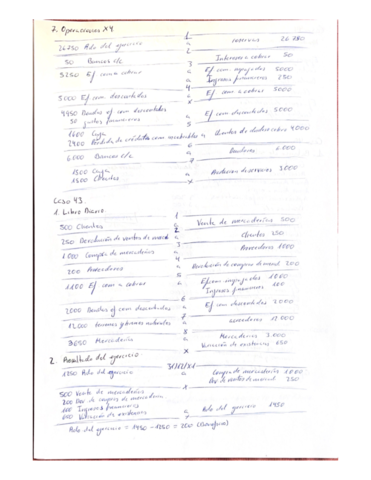 7. Operaciones X4.
1
26 280 Rdo del ejercicio a reservas 26 280
2
50 Bancos c/c a Intereses a cobrar 50
3
5250 Ef com a cobrar a Ef com impagados 5000
a Ingresos financieros 250
4
5000 Ef com descontados a Ef com a cobrar 5000
5
4950 Deudas ef com descontados
50 juntos financieros a Ef com descontados 5000
Caja
Pérdida de créditos com incobrables a clientes de dudoso cobro 4000
6
6.000 Bancos c/c a Deudores 6.000
7
1500 Caja
1500 Clientes a
Caso 43.
1. Libro Diario.
1
500 Clientes a Venta de mercaderías 500
2
250 Devolución de ventas de mercad a Clientes 250
3
1.000 Compra de mercaderías a Proveedores 1000
4
200 Proveedores a Devolución de compras de mercad 200
5
1100 Ef com a cobrar a Ef com impagados 1000
a Ingresos financieros 100
6
2000 Deudas ef com descontados a Ef com descontados 2000
7
12.000 terrenos y bienes naturales a acreedores 12.000
8
Mercaderías a Mercaderías
Variación de existencias 650
2. Resultado del ejercicio
31/12/X1
1250 Rdo del ejercicio a Compra de mercaderías 1000
Dev de ventas de mercad 250
500 Venta de mercaderías
200 Dev de compras de mercadería
100 Ingresos financieros
Variación de existencias a Rdo del ejercicio 1450
Rdo del ejercicio = 1450 - 1250 = 200 (Beneficio)